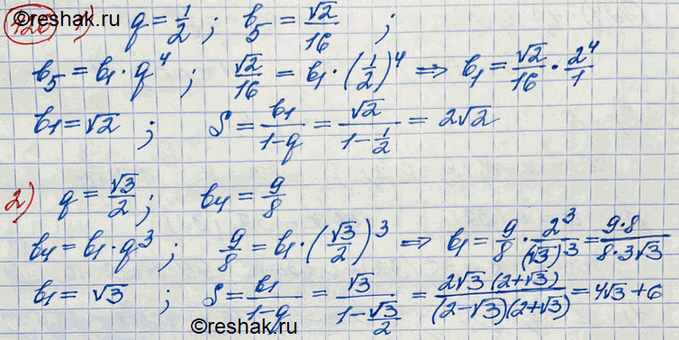 ©reshak.ru
126 1) q = 1/2 ; b₅ = √2/16 ;
b₅ = b₁ · q⁴ ; √2/16 = b₁ · (1/2)⁴ ⇒ b₁ = √2/16 · 2⁴/1
b₁ = √2 ; S = b₁/(1-q) = √2/(1-1/2) = 2√2
2) q = √3/2 ; b₄ = 9/8
b₄ = b₁ · q³ ; 9/8 = b₁ · (√3/2)³ ⇒ b₁ = 9/8 · 2³/(√3)³ = 9·8/(8·3√3)
b₁ = √3 ; S = b₁/(1-q) = √3/(1-√3/2) = 2√3(2+√3)/((2-√3)(2+√3)) = 4√3+6
©reshak.ru